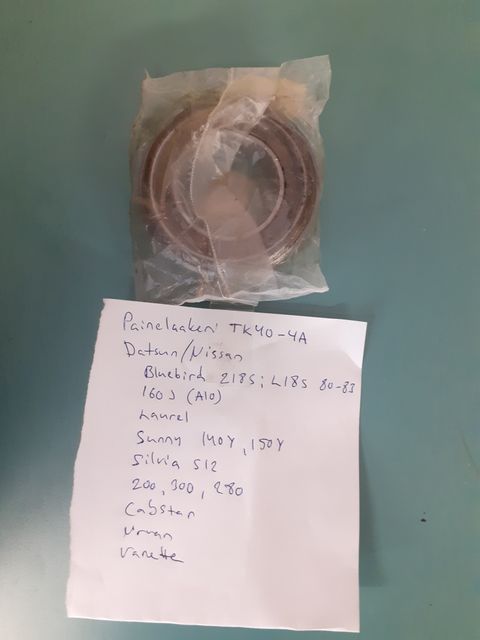 Painelaakeri TK40-4A
Datsun/Nissan
Bluebird 218S; L18S 80-83
160J (A10)
Laurel
Sunny 140Y, 150Y
Silvia S12
200, 300, 280
Cabstar
Urvan
Vanette